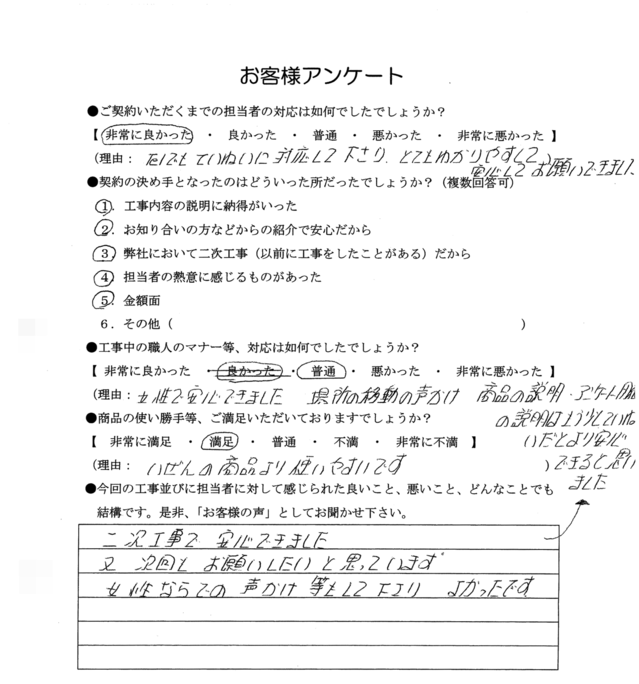 お客様アンケート
●ご契約いただくまでの担当者の対応は如何でしたでしょうか？
【 非常に良かった ・ 良かった ・ 普通 ・ 悪かった ・ 非常に悪かった 】
(理由： ていねいに対応して下さり、とてもわかりやすくて、
安心してお願いできました
●契約の決め手となったのはどういった所だったでしょうか？（複数回答可）
1．工事内容の説明に納得がいった
2．お知り合いの方などからの紹介で安心だから
3）弊社において二次工事（以前に工事をしたことがある）だから
4）担当者の熱意に感じるものがあった
5．金額面
6．その他（ ）
●工事中の職人のマナー等、対応は如何でしたでしょうか？
【 非常に良かった ・ 良かった ・ 普通 ・ 悪かった ・ 非常に悪かった 】
(理由： 女性で安心できました 場所の移動の声かけ 商品の説明・
の説明はもう少していね
いだとより安心
できると思い
ました
●商品の使い勝手等、ご満足いただいておりますでしょうか？
【 非常に満足 ・ 満足 ・ 普通 ・ 不満 ・ 非常に不満 】
(理由： いぜんの商品より使いやすいです ）
●今回の工事並びに担当者に対して感じられた良いこと、悪いこと、どんなことでも
結構です。是非、「お客様の声」としてお聞かせ下さい。
二次工事で安心できました
又 次回も お願いしたいと思っています
女性ならでの 声かけ 等もして下さり よかったです